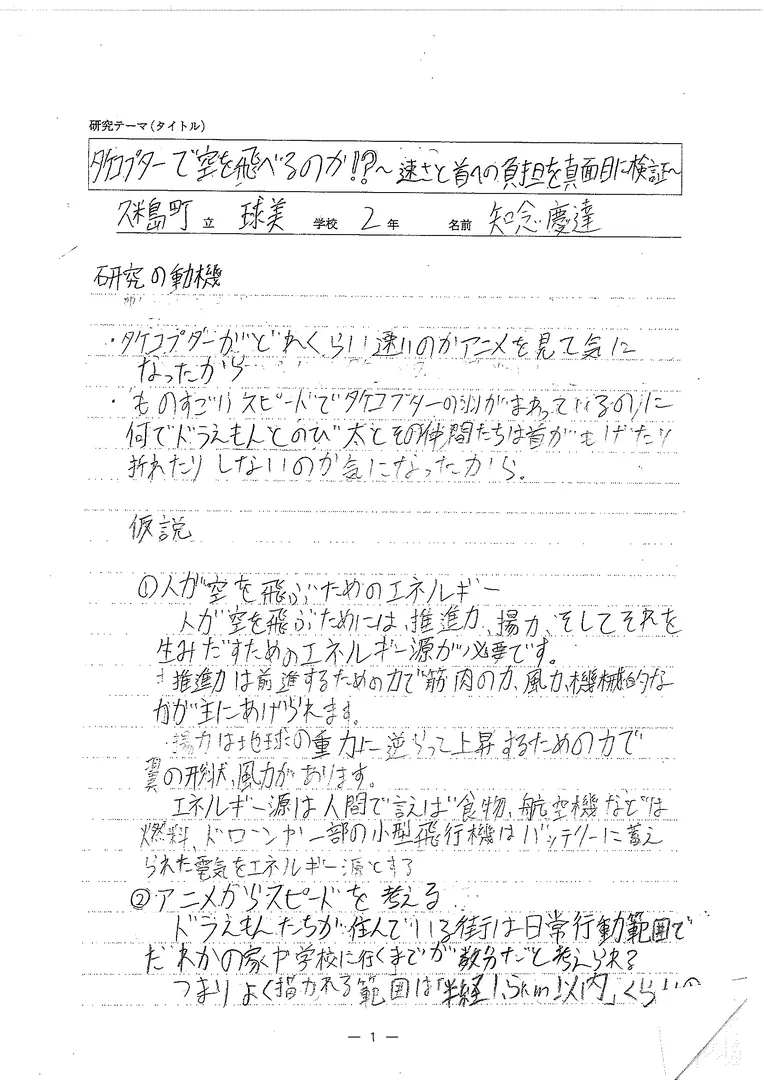 研究テーマ(タイトル)
タケコプターで空を飛べるのか!?〜速さと首への負担を真面目に検証〜
久米島町 立 球美 学校 2 年 名前 知念慶達
研究の動機
・タケコプターがどれくらい速いのかアニメを見て気に
なったから
・ものすごいスピードでタケコプターの羽がまわってなるのに
何でドラえもんとのび太とその仲間たちは首がもげたり
折れたりしないのか気になったから。
仮説
①人が空を飛ぶためのエネルギー
人が空を飛ぶためには、推進力、揚力、そしてそれを
生みだすためのエネルギー源が必要です。
推進力は前進するための力で筋肉の力、風力、機械的な
力が主にあげられます。
・揚力は地球の重力に逆らって上昇するための力で
翼の形状、風力があります。
エネルギー源は人間で言えば食物、航空機などは
燃料、ドローンや一部の小型飛行機はバッテリーに蓄え
られた電気をエネルギー源とする
②アニメからスピードを考える
ドラえもんたちが住んでいる街は日常行動範囲で
だれかの家や学校に行くまでが数分だと考えられる
つまりよく描かれる範囲は「半経1.5km以内」くらいの
— 1 —